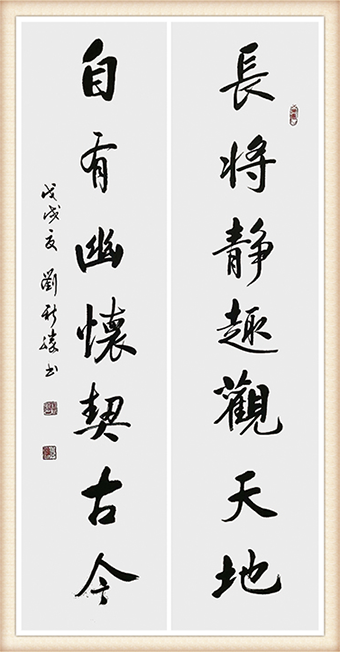 長将静趣觀天地
自有幽懷契古今
戊戌夏 劉新 书